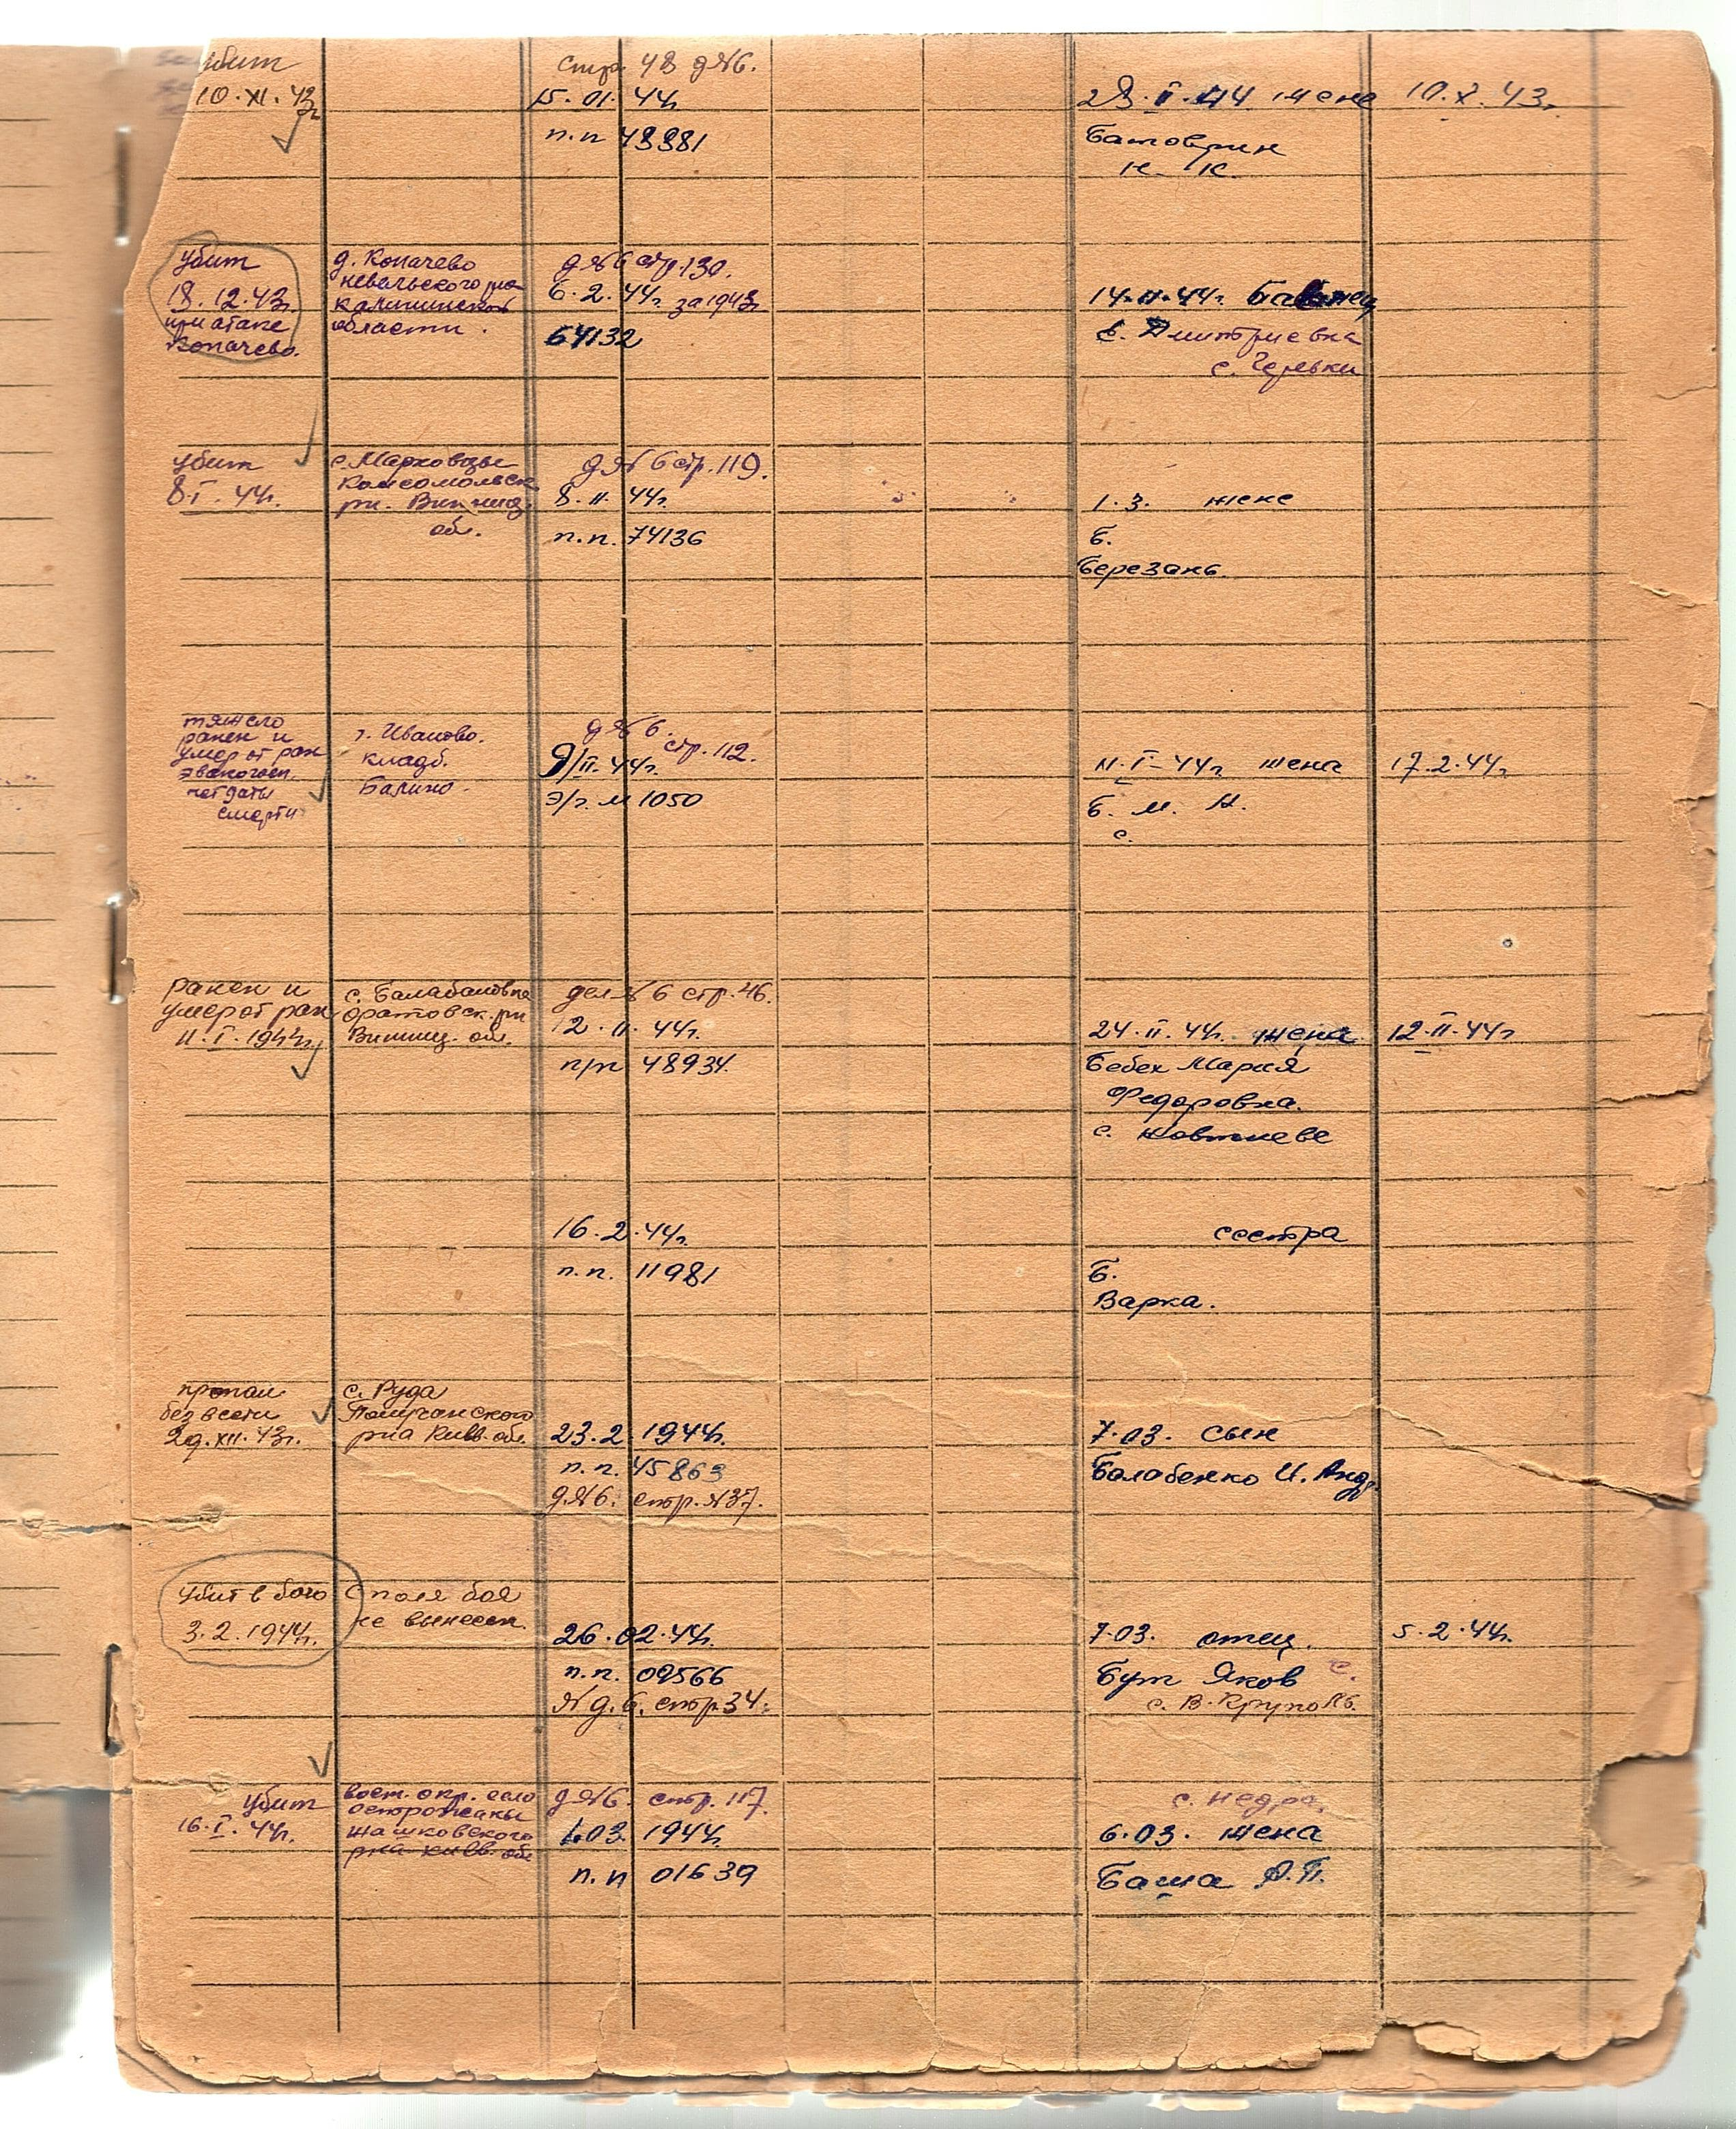 убит
10.XI.43г.
стр. 48 д№6.
15.01.44г.
п.п 48881
28.I.44 жене 10.X.43г.
Батоврин
Н. К.
убит
18.12.43г.
при атаке
Копачево.
д. Копачево
невельского р-на
калининской
области.
д№6 стр.130.
6.2.44г. за 1943г
64132
14.II.44г.
Е. Дмитриевна
убит
8.I.44г.
с. Марковцы
Комсомольск
рн. Винниц.
обл.
д№6 стр.119.
8.II.44г.
п.п. 74136
1.3. жене
Б.
Березань.
тяжело
ранен и
умер от ран
эвакогосп.
нет даты
смерти
г. Иваново.
кладб.
Балино.
д№6.
стр.112.
9/II.44г.
э/г. № 1050
11.I-44г жена 17.2.44г.
Б. М. Н.
с.
ранен и
умер от ран
11.I.1944г.
с. Балабановка
Оратовск. рн
Винниц. обл.
дел№6 стр.46.
12.II.44г.
п/п 48934.
24.II.44г. жена 12.II.44г
Бебех Мария
Федоровна.
с. Жовтневе
16.2.44г.
п.п. 11981
сестра
Б.
Варка.
пропал
без вести
29.XII.43г.
с. Руда
рна Киев. обл.
23.2.1944г.
п.п. 45863
д№6. стр.№37.
7.03. сын
Балабенко И. Анд.
убит в бою
3.2.1944г.
с поля боя
не вынесен.
26.02.44г.
п.п. 09566
№ д.6. стр.34.
7.03. отец. 5.2.44г.
Бут Яков С.
с. В-Круполь.
убит
16.I.44г.
вост. окр. село
острожаны
жашковского
рна киев. обл
д№6. стр. 117.
1.03. 1944г.
п.п 01639
с. недра.
6.03. жена
Баша А.П.